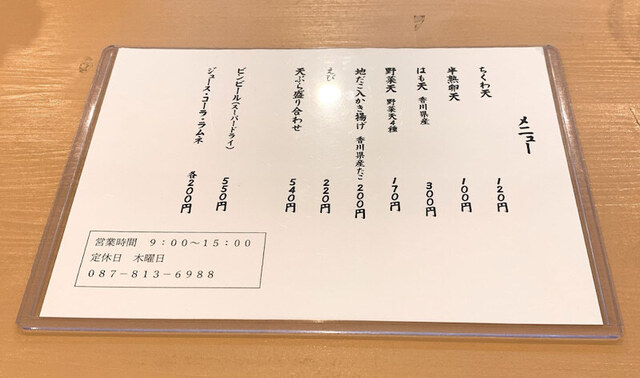 メニュー
ちくわ天 120円
半熟卵天 100円
はも天 香川県産 300円
野菜天 野菜天4種 170円
地だこ入かき揚げ 香川県産たこ 200円
えび 220円
天ぷら盛り合わせ 540円
ビンビール(スーパードライ) 550円
ジュース・コーラ・ラムネ 各200円
営業時間 9:00～15:00
定休日 木曜日
087-813-6988